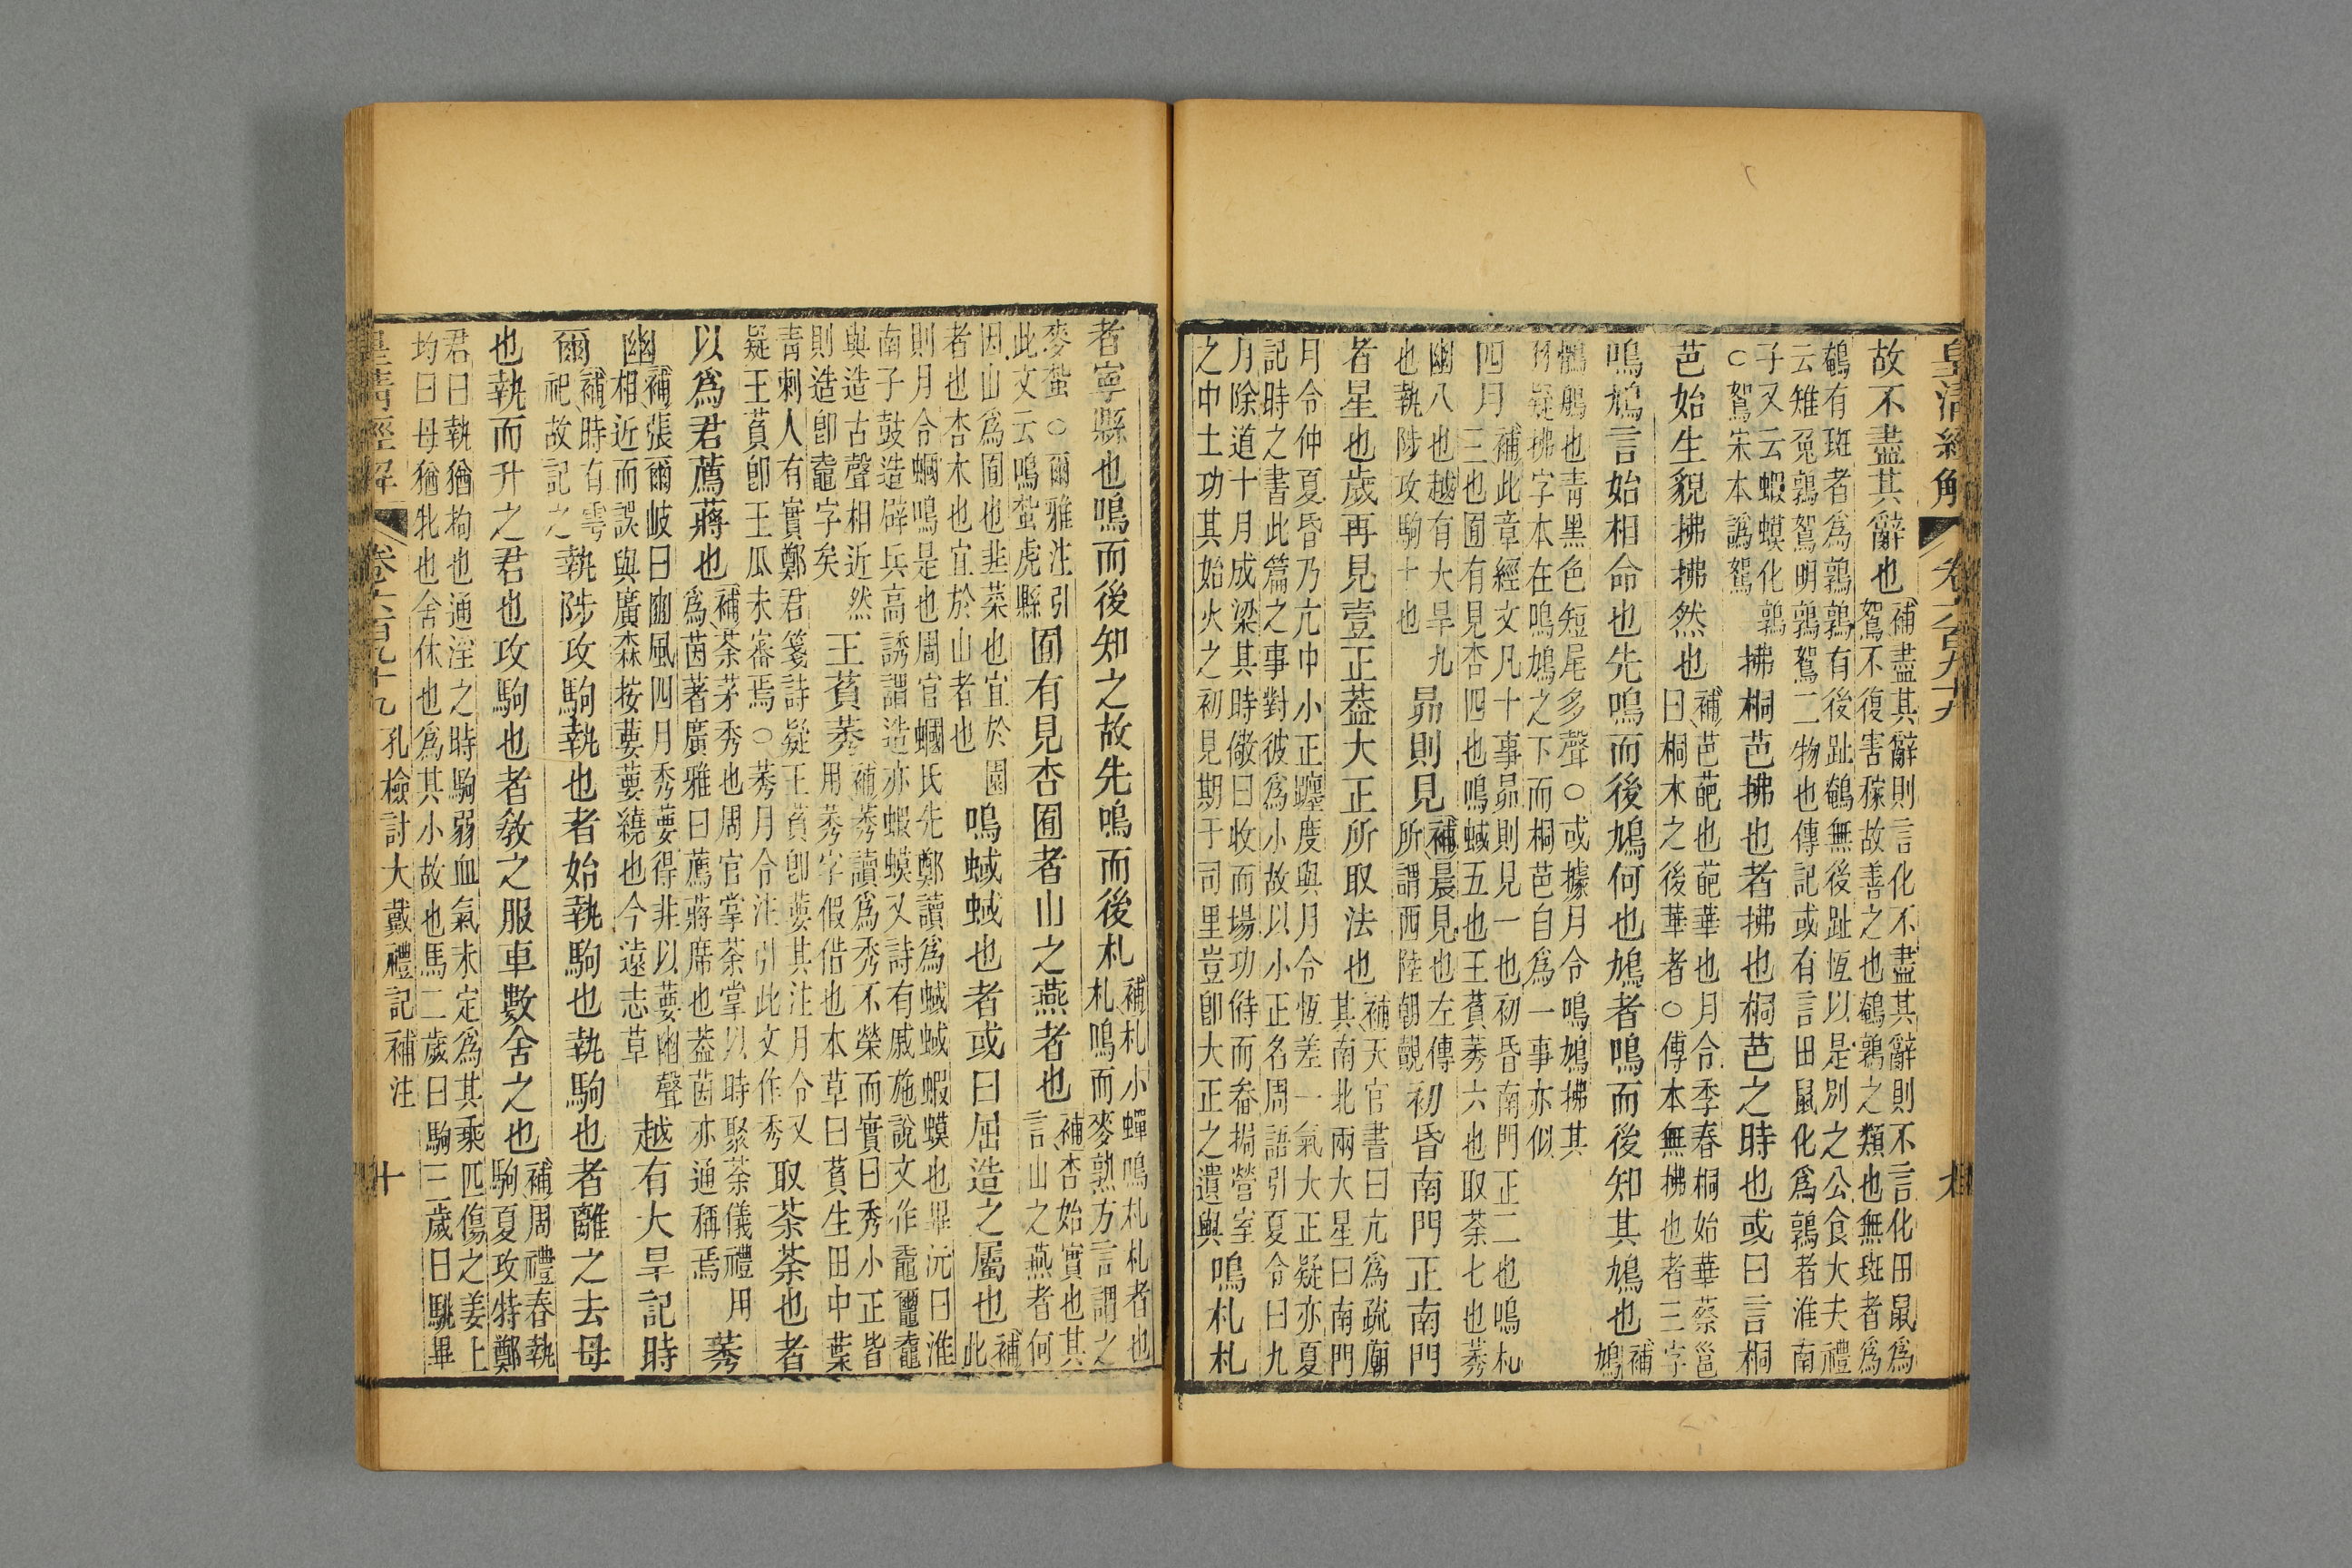 皇清經解 卷六百九十九 九
故不盡其辭也
補盡其辭則言化不盡其辭則不言化田鼠爲
鴽不復害稼故善之也鵪鶉之類也無斑者爲
鵪有斑者爲鶉鶉有後趾鵪無後趾恆以是別之公食大夫禮
云雉兔鶉鴽明鶉鴽二物也傳記或有言田鼠化爲鶉者淮南
子又云蝦蟆化鶉
○鴽宋本譌鴛
拂桐芭拂也者拂也桐芭之時也或曰言桐
芭始生貌拂拂然也
補芭葩也葩華也月令季春桐始華蔡邕
曰桐木之後華者○傅本無拂也者三字
鳴鳩言始相命也先鳴而後鳩何也鳩者鳴而後知其鳩也
補
鳩
鶻鵃也青黑色短尾多聲○或據月令鳴鳩拂其
羽疑拂字本在鳴鳩之下而桐芭自爲一事亦似
四月
補此章經文凡十事昴則見一也初昏南門正二也鳴札
三也囿有見杏四也鳴蜮五也王萯莠六也取荼七也莠
幽八也越有大旱九
也執陟攻駒十也
昴則見
補晨見也左傳
所謂西陸朝覿
初昏南門正南門
者星也歲再見壹正蓋大正所取法也
補天官書曰亢爲疏廟
其南北兩大星曰南門
月令仲夏昏乃亢中小正躔度與月令恆差一氣大正疑亦夏
記時之書此篇之事對彼爲小故以小正名周語引夏令曰九
月除道十月成梁其時儆曰收而場功偫而畚挶營室
之中土功其始火之初見期于司里豈卽大正之遺與
鳴札札
者寧縣也鳴而後知之故先鳴而後札
補札小蟬鳴札札者也
札鳴而麥熟方言謂之
麥蚻○爾雅注引
此文云鳴蚻虎縣
囿有見杏囿者山之燕者也
補杏始實也其
言山之燕者何
因山爲囿也韭菜也宜於園
者也杏木也宜於山者也
鳴蜮蜮也者或曰屈造之屬也
補
此
則月令蟈鳴是也周官蟈氏先鄭讀爲蜮蜮蝦蟆也畢沅曰淮
南子鼓造辟兵高誘謂造亦蝦蟆又詩有戚施說文作
與造古聲相近然
則造卽鼀字矣
王萯莠
補莠讀爲秀不榮而實曰秀小正皆
用莠字假借也本草曰萯生田中葉
青刺人有實鄭君箋詩疑王萯卽葽其注月令又
疑王萯卽王瓜未審焉○莠月令注引此文作秀
取荼荼也者
以爲君薦蔣也
補荼茅秀也周官掌荼掌以時聚荼儀禮用
爲茵著廣雅曰薦蔣席也蓋茵亦通稱焉
莠
幽
補張爾岐曰豳風四月秀葽葽得非以葽幽聲
相近而誤與廣森按葽葽繞也今遠志草
越有大旱記時
爾
補時有雩
祀故記之
執陟攻駒執也者始執駒也執駒也者離之去母
也執而升之君也攻駒也者敎之服車數舍之也
補周禮春執
駒夏攻特鄭
君曰執猶拘也通淫之時駒弱血氣未定爲其乘匹傷之姜上
均曰母猶牝也舍休也爲其小故也馬二歲曰駒三歲曰駣畢
皇清經解 卷六百九十九 孔檢討大戴禮記補注 十